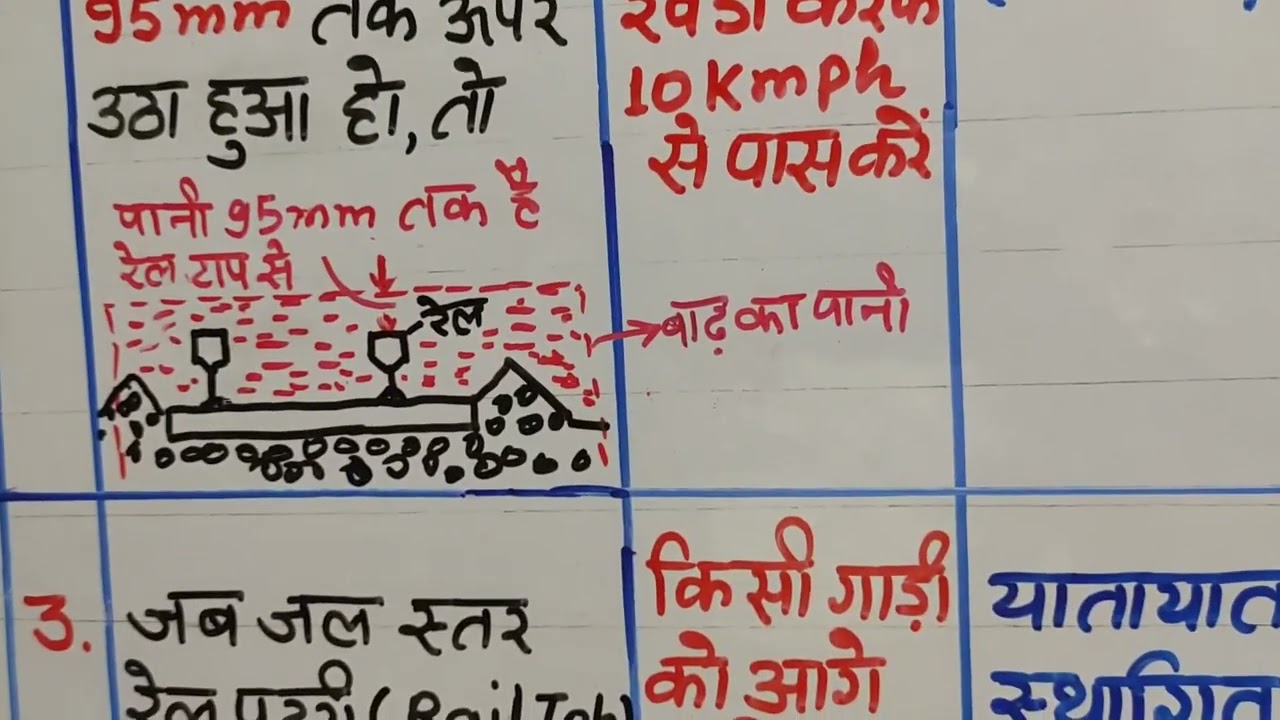 95mm तक ऊपर
उठा हुआ हो, तो
पानी 95mm तक है
रेल टाप से
रेल
खड़ा करके
10Kmph
से पास करें
बाढ़ का पानी
3. जब जल स्तर
रेल पटरी (Rail Top)
किसी गाड़ी
को आगे
यातायात
स्थगित